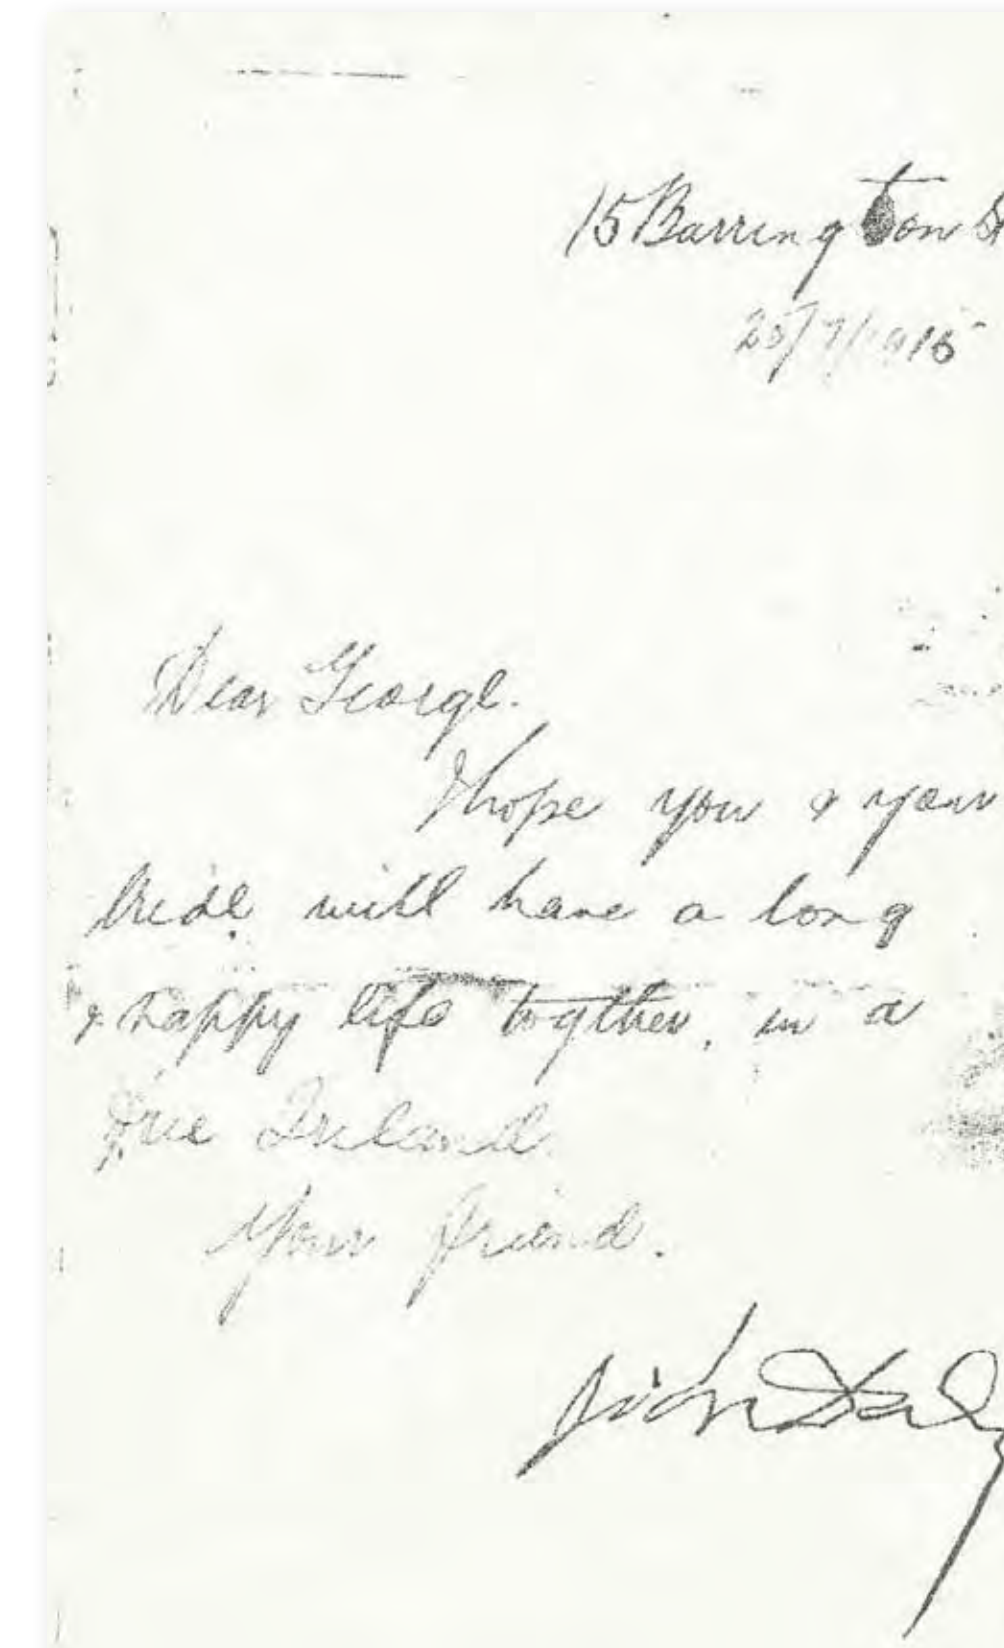 15 Barrington St
25/7/1915
Dear George.
I hope you & your
bride will have a long
& happy life togther, in a
free Ireland.
Your friend.
John Daly